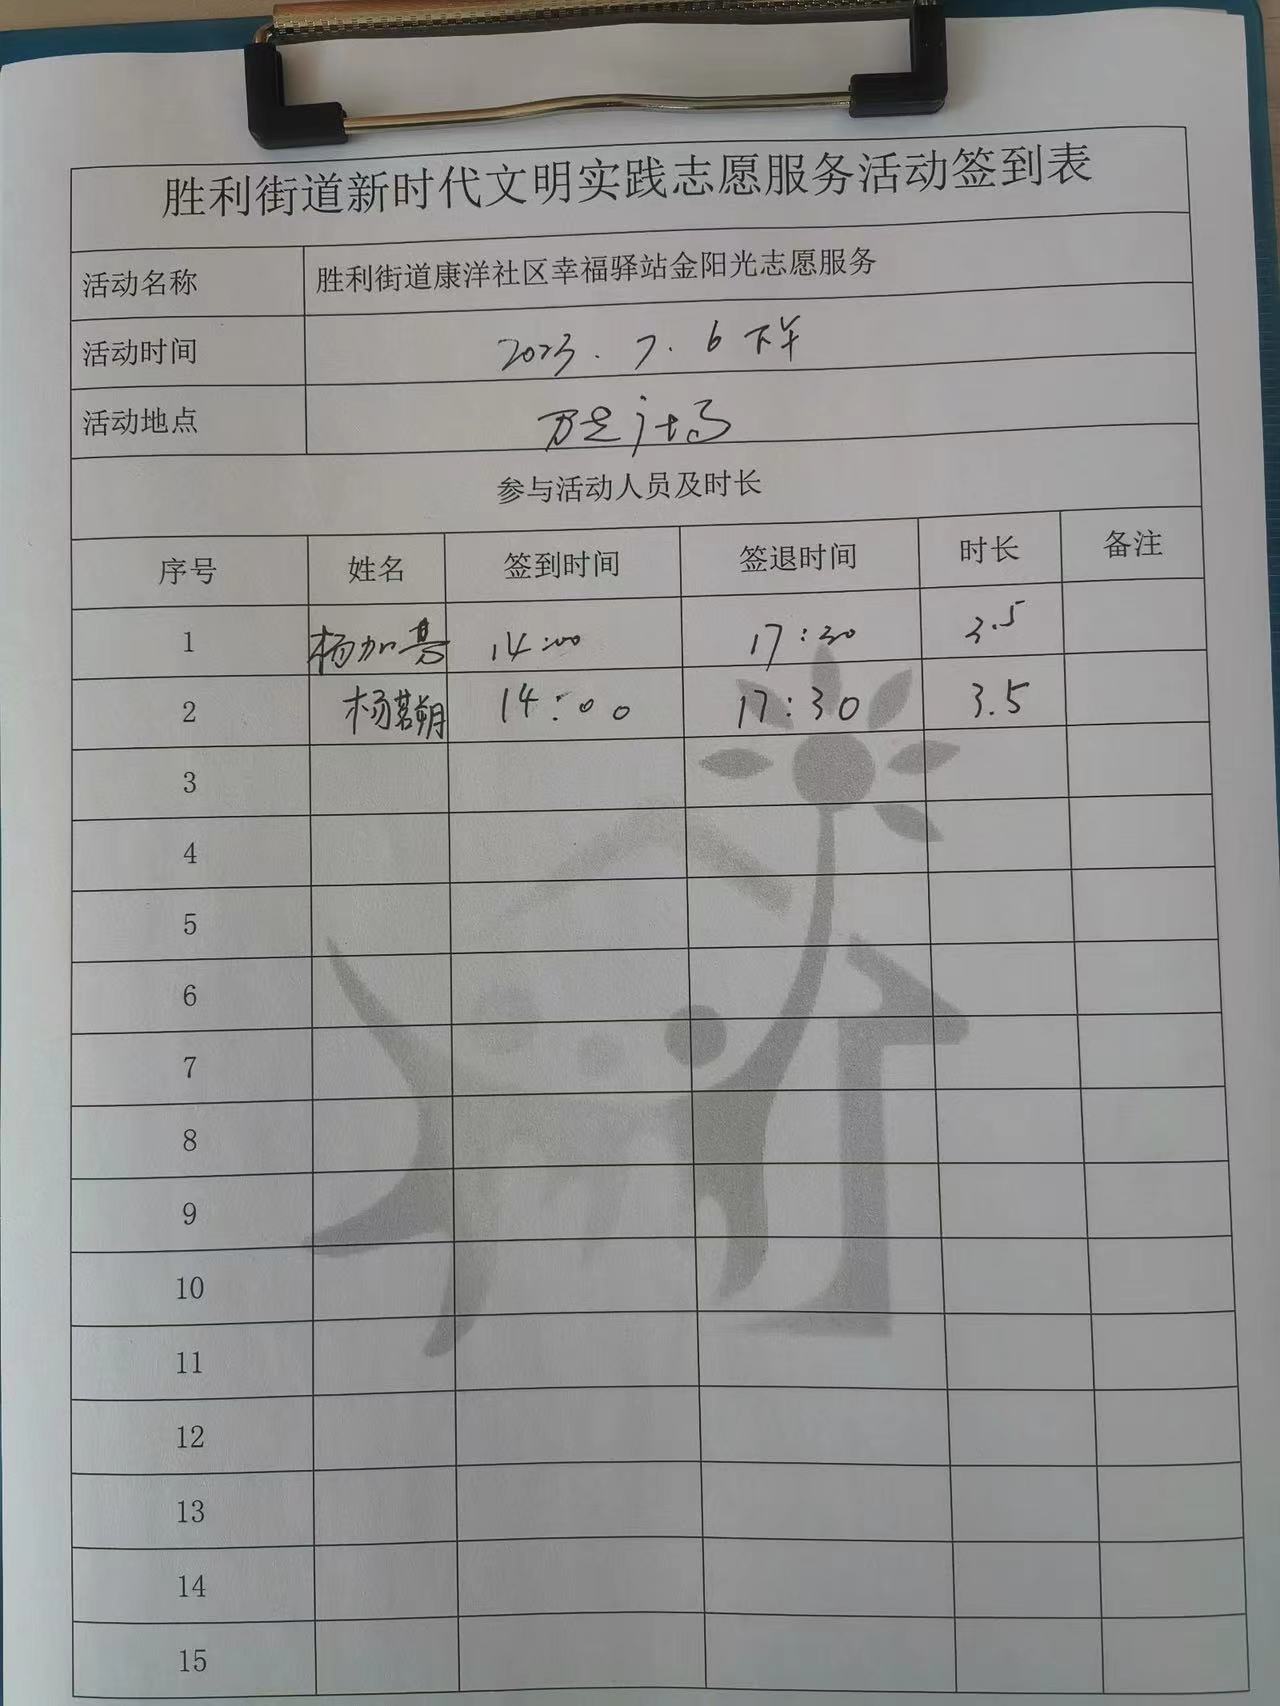 胜利街道新时代文明实践志愿服务活动签到表
活动名称 胜利街道康洋社区幸福驿站金阳光志愿服务
活动时间 2023.7.6 下午
活动地点
参与活动人员及时长
序号 姓名 签到时间 签退时间 时长 备注
1 杨加 14:00 17:30 3.5
2 杨茗朔 14:00 17:30 3.5
3
4
5
6
7
8
9
10
11
12
13
14
15